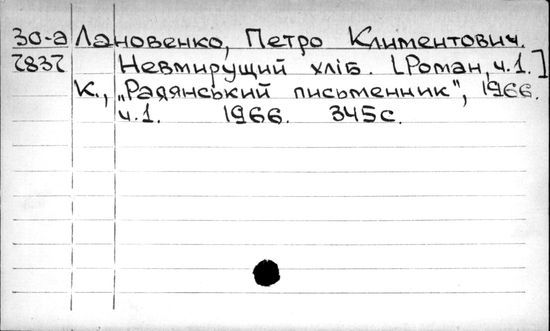 30-а Лановенко, Петро Климентович.
2832 Невмирущий хліб. [Роман, ч.1.]
К., „Радянський письменник", 1966.
ч.1. 1966. 345с.